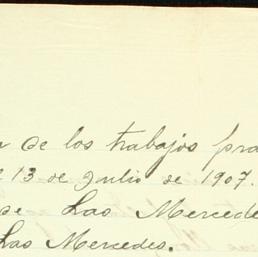 de los trabajos
13 de Julio de 1907.
de Las Mercede
Las Mercedes.